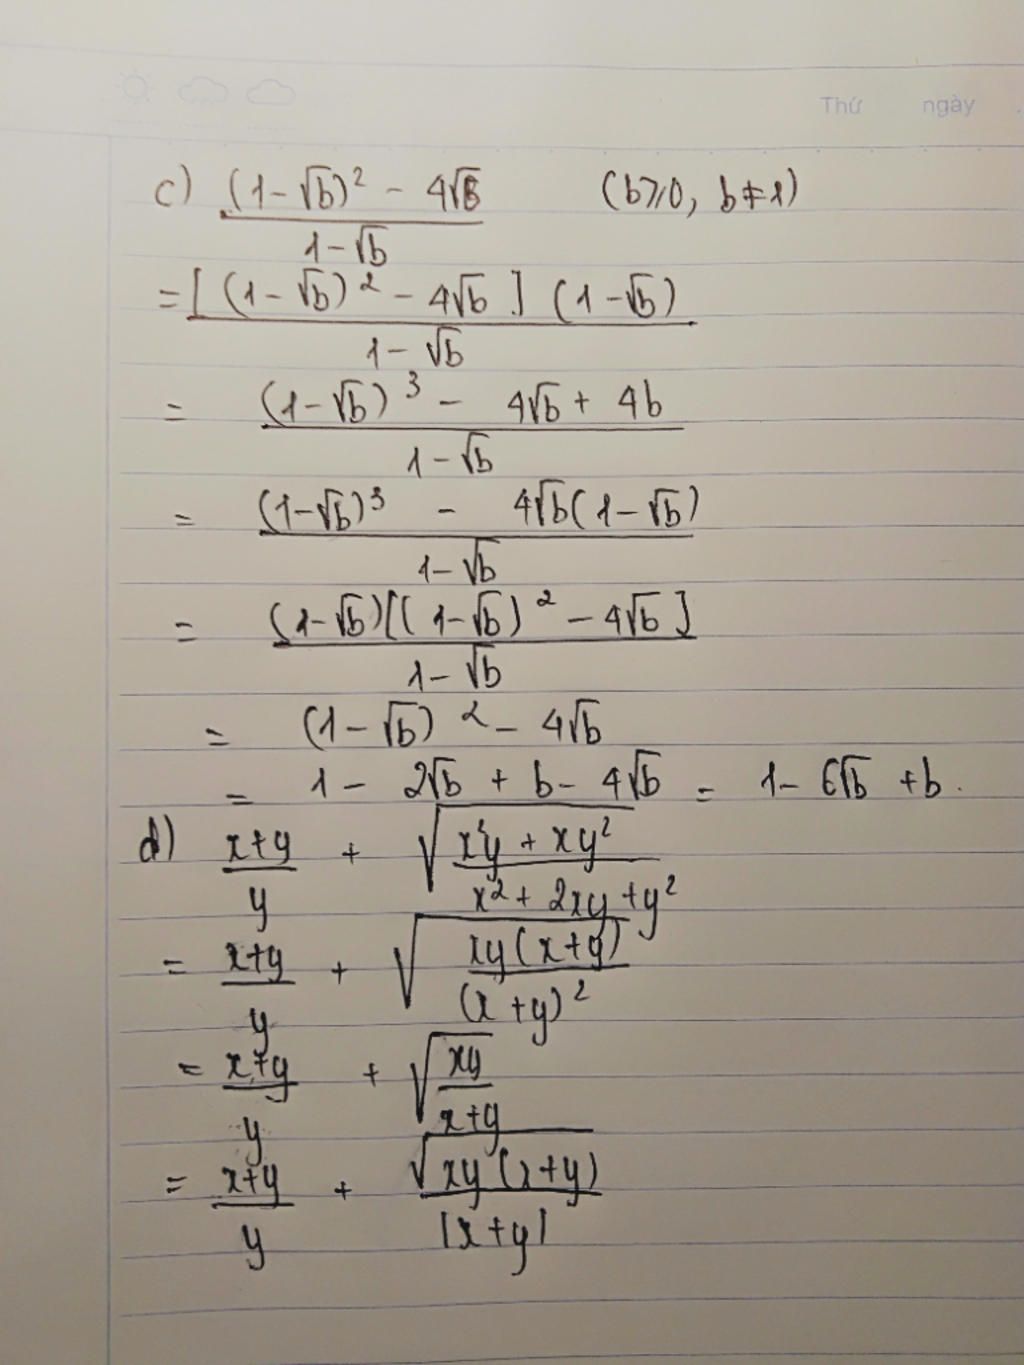 Thứ ngày
c) ((1-√b)² - 4√b)/(1-√b) (b≥0, b≠1)
= [(1-√b)² - 4√b](1-√b)/(1-√b)
= ((1-√b)³ - 4√b + 4b)/(1-√b)
= ((1-√b)³ - 4√b(1-√b))/(1-√b)
= (1-√b)[(1-√b)² - 4√b]/(1-√b)
= (1-√b)² - 4√b
= 1 - 2√b + b - 4√b = 1 - 6√b + b.
d) (x+y)/y + √((x²y + xy²)/(x² + 2xy + y²))
= (x+y)/y + √(xy(x+y)/(x+y)²)
= (x+y)/y + √(xy/(x+y))
= (x+y)/y + √(xy(x+y))/|x+y|